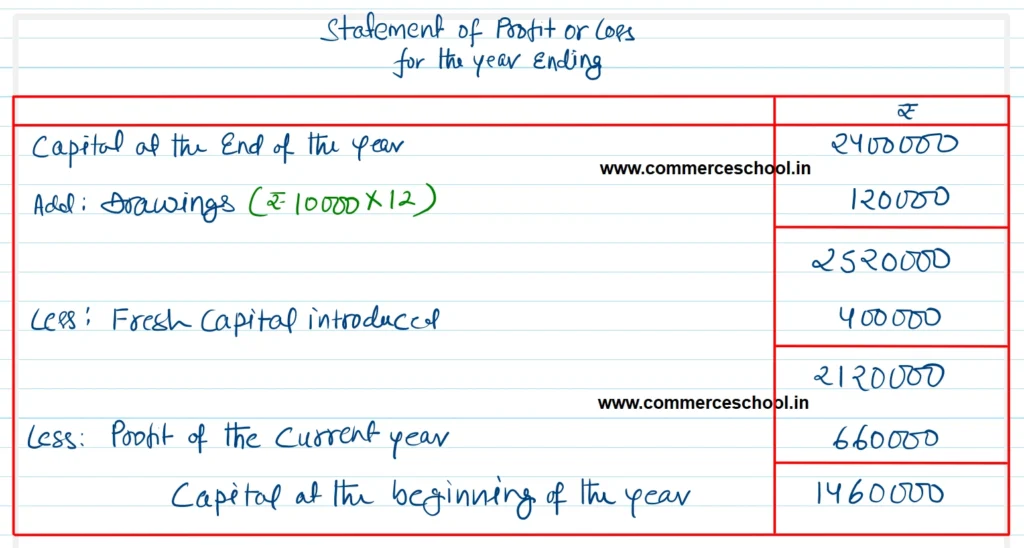 Statement of Profit or Loss
for the year Ending
₹
Capital at the End of the year 2400000
www.commerceschool.in
Add: Drawings (₹ 10000 X 12) 120000
2520000
Less: Fresh Capital introduced 400000
2120000
www.commerceschool.in
Less: Profit of the Current year 660000
Capital at the beginning of the year 1460000